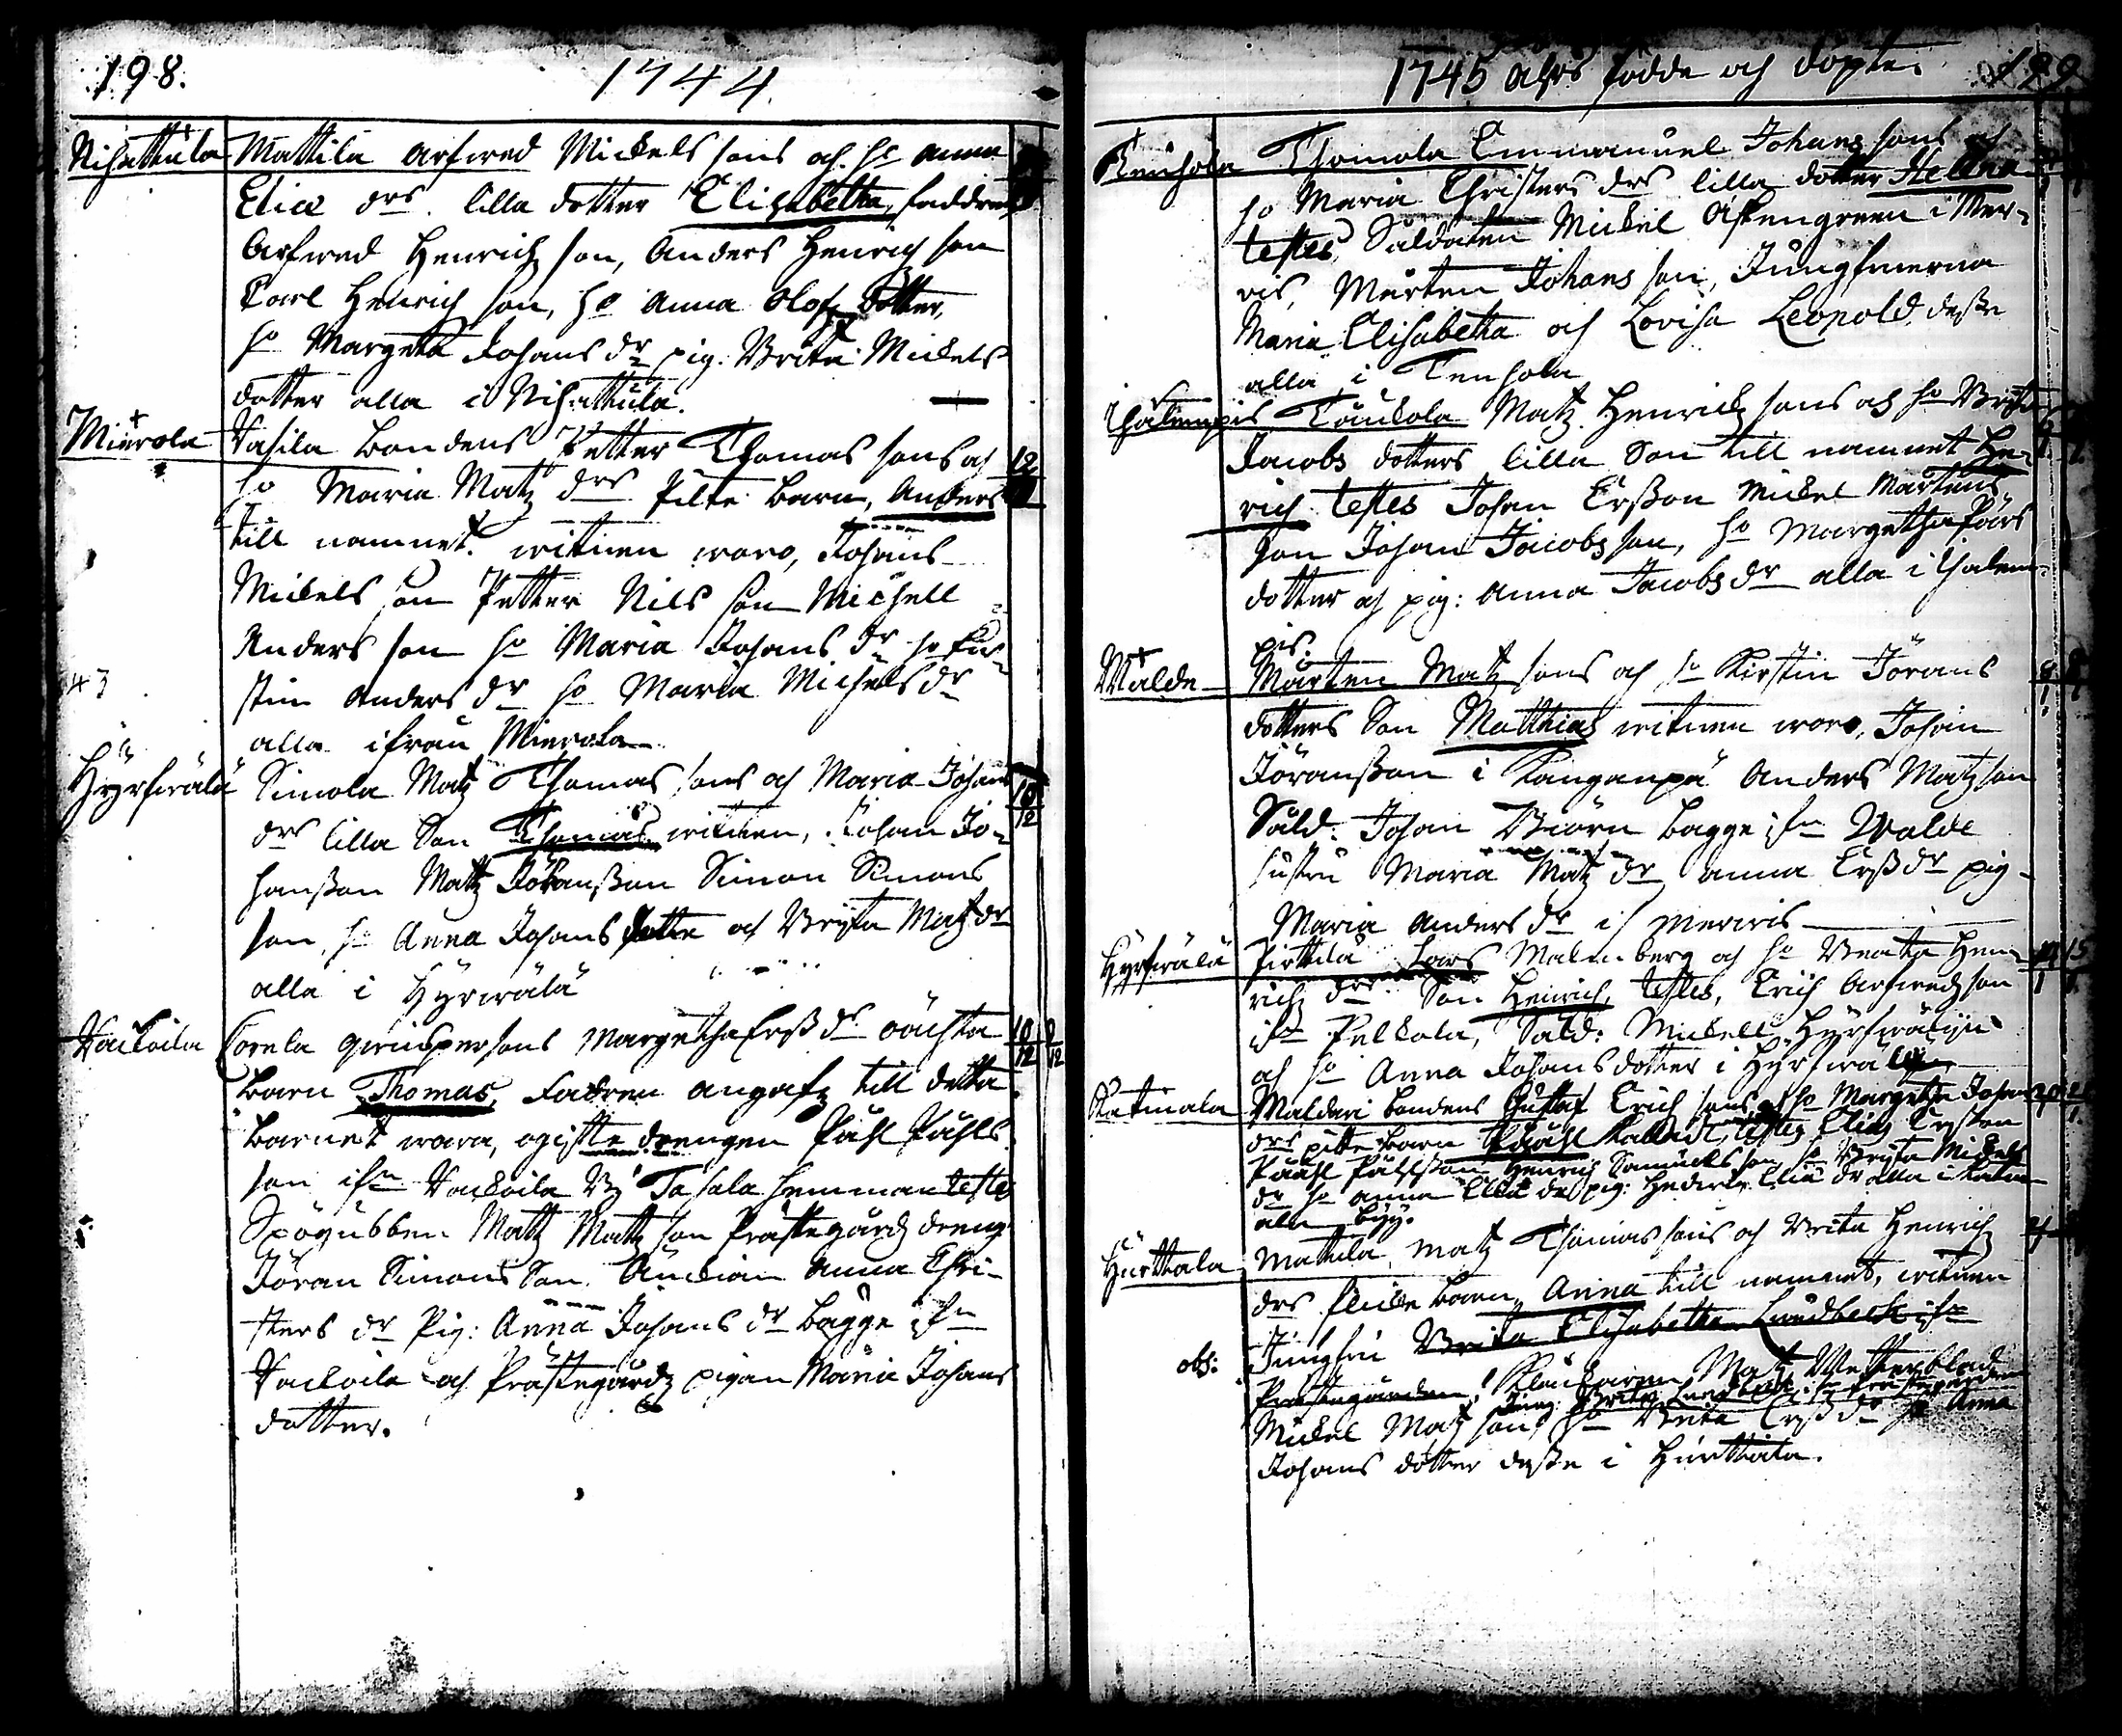 198.
1744.
Nihattula Mattila Arfwed Mickels sons och ho Anna
Eliæ drs. lilla dotter Elizabetha, faddrar
Arfwed Henrichz son, Anders Henrich son
Carl Henrich son, ho Anna Olofz dotter,
ho Margeta Johans dr pig. Brita Mickels
dotter alla i Nihattula.
Mierola Vasila bondens Petter Thomas sons och 12
ho Maria Matz drs Pilte barn, Anders
till namnet. witnen woro, Johans
Mickels son Petter Nils son Michell
Anders son ho Maria Johans dr ho Kir-
stin Anders dr ho Maria Michels dr
43
alla ifrån Mierola
Hyrfwälä Simola Matz Thomas sons och Maria Johans 18
drs lilla Son Thomas witnen, Johan Jo- 12
hansson Matz Jöransson Simon Simons
son, ho Anna Johans dotter och Bryta Matz dr
alla i Hyrwälä
Vackoila Corela Margetha Erss dr oächta 18
barn Thomas, Fadren angafz till detta 12 12
barnet wara, ogiffte drengen Påhl Påhls
son ifrn Vackoila By Tasala hemman testes
Spögubben Matz Matz son Prästegårdz dreng
Jöran Simons Son. Änckian Anna Chri-
sters dr Pig: Anna Johans dr Bagge ifrn
Vackoila och Prästegårdz pigan Maria Johans
dotter.
1745 ahrs födde och döpte. 199.
Renhola Thomola Emmanuel Johans sons och
ho Maria Christers drs lilla dotter Hellna
testes, Saldaten Mickel Aspengreen i Mer-
vis, Mårten Johans son, Jungfruerna
Maria Elisabetha och Lovisa Leopold, desse
alla i Tenhola
Ihalempis Touckola Matz Henrich sons och ho Brita
Jacobs dotters lilla Son till namnet He-
rich testes Johan Ersson Mickel Mårtens
son Johan Jacobs son, ho Margetha Påls
dotter och pig: Anna Jacobs dr alla i Ihalem-
pis.
Walde Mårten Matz sons och ho Kirstin Jörans
dotters Son Matthias witnen woro, Johan
Jöransson i Kanganpä Anders Matzson
Sald: Johan Biörn Bagge ifrn Walde
hustru Maria Matz dr Anna Erss dr pig
Maria Anders dr if Merwis
Hyrfwälä Pirttilä Lars Malmberg och ho Beata Hen- 15
rich drs Son Henrich, testes, Erich Arfwedz son
ifrn Pelkola, Sald: Mickell Hyrfwälijn
och ho Anna Johans dotter i Hyrfwälä
Katinala Maldari bondens Gustaf Erich sons och ho Margetha Johans
drs pilte barn Påhl kallad, testes Elias Ersson
Påhl Påhlsson Henrich Samuels son ho Bryta Mickels
dr ho Anna Eliæ dr pig: Hedwig Eliæ dr alla i Katin-
ala byy.
Hurttala Mattila Matz Thomas sons och Brita Henrich
drs flicke barn, Anna till namnet, witnen
obs: Jungfru Brita Elisabetha Lundbeck ifrn
Prästegården, Klåckaren Matz Wetterblad
Jung: Brita Lundbeck ifrn Prästegården
Mickel Matz son, ho Brita Erss dr ho Anna
Johans dotter desse i Hurttala.